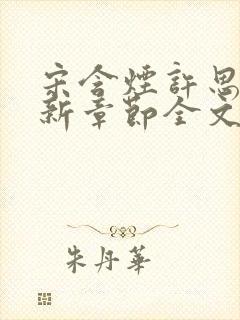 宋含煙許思
新章節全文
朱丹華